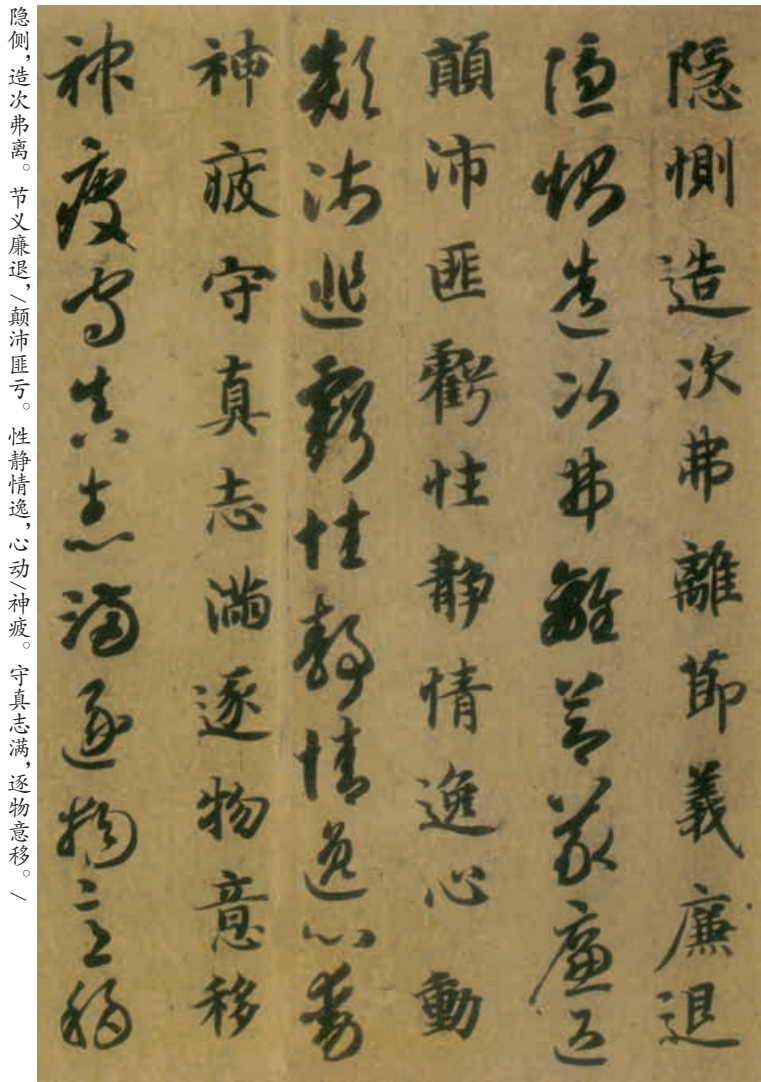 隐惻造次弗離節義廉退
隐惻造次弗離節義廉退
顛沛匪虧性静情逸心動
顛沛匪虧性静情逸心動
神疲守真志滿逐物意移
神疲守真志滿逐物意移
隐侧，造次弗离。节义廉退，/颠沛匪亏。性静情逸，心动/神疲。守真志满，逐物意移。/